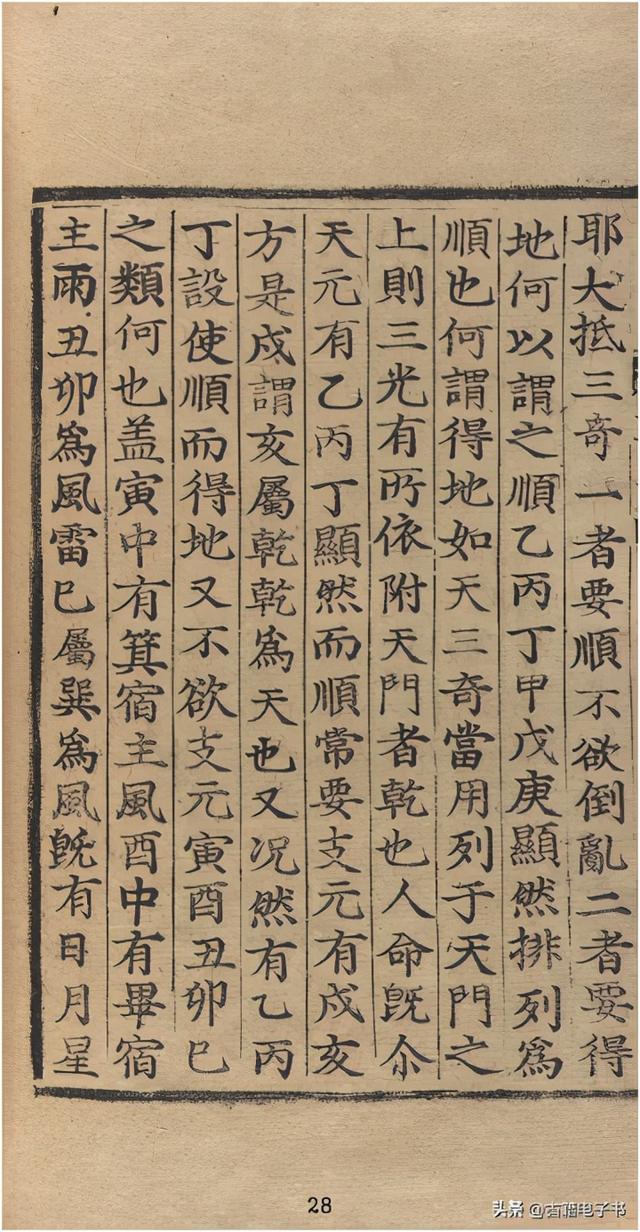 耶大抵三奇一者要順不欲倒亂二者要得
地何以謂之順乙丙丁甲戊庚顯然排列爲
順也何謂得地如天三奇當用列于天門之
上則三光有所依附天門者乾也人命旣尒
天元有乙丙丁顯然而順常要支元有戍亥
方是戍謂亥屬乾乾爲天也又况然有乙丙
丁設使順而得地又不欲支元寅酉丑卯巳
之類何也盖寅中有箕宿主風酉中有畢宿
主雨丑卯爲風雷巳屬巽爲風旣有日月星
28
头条@古籍电子书